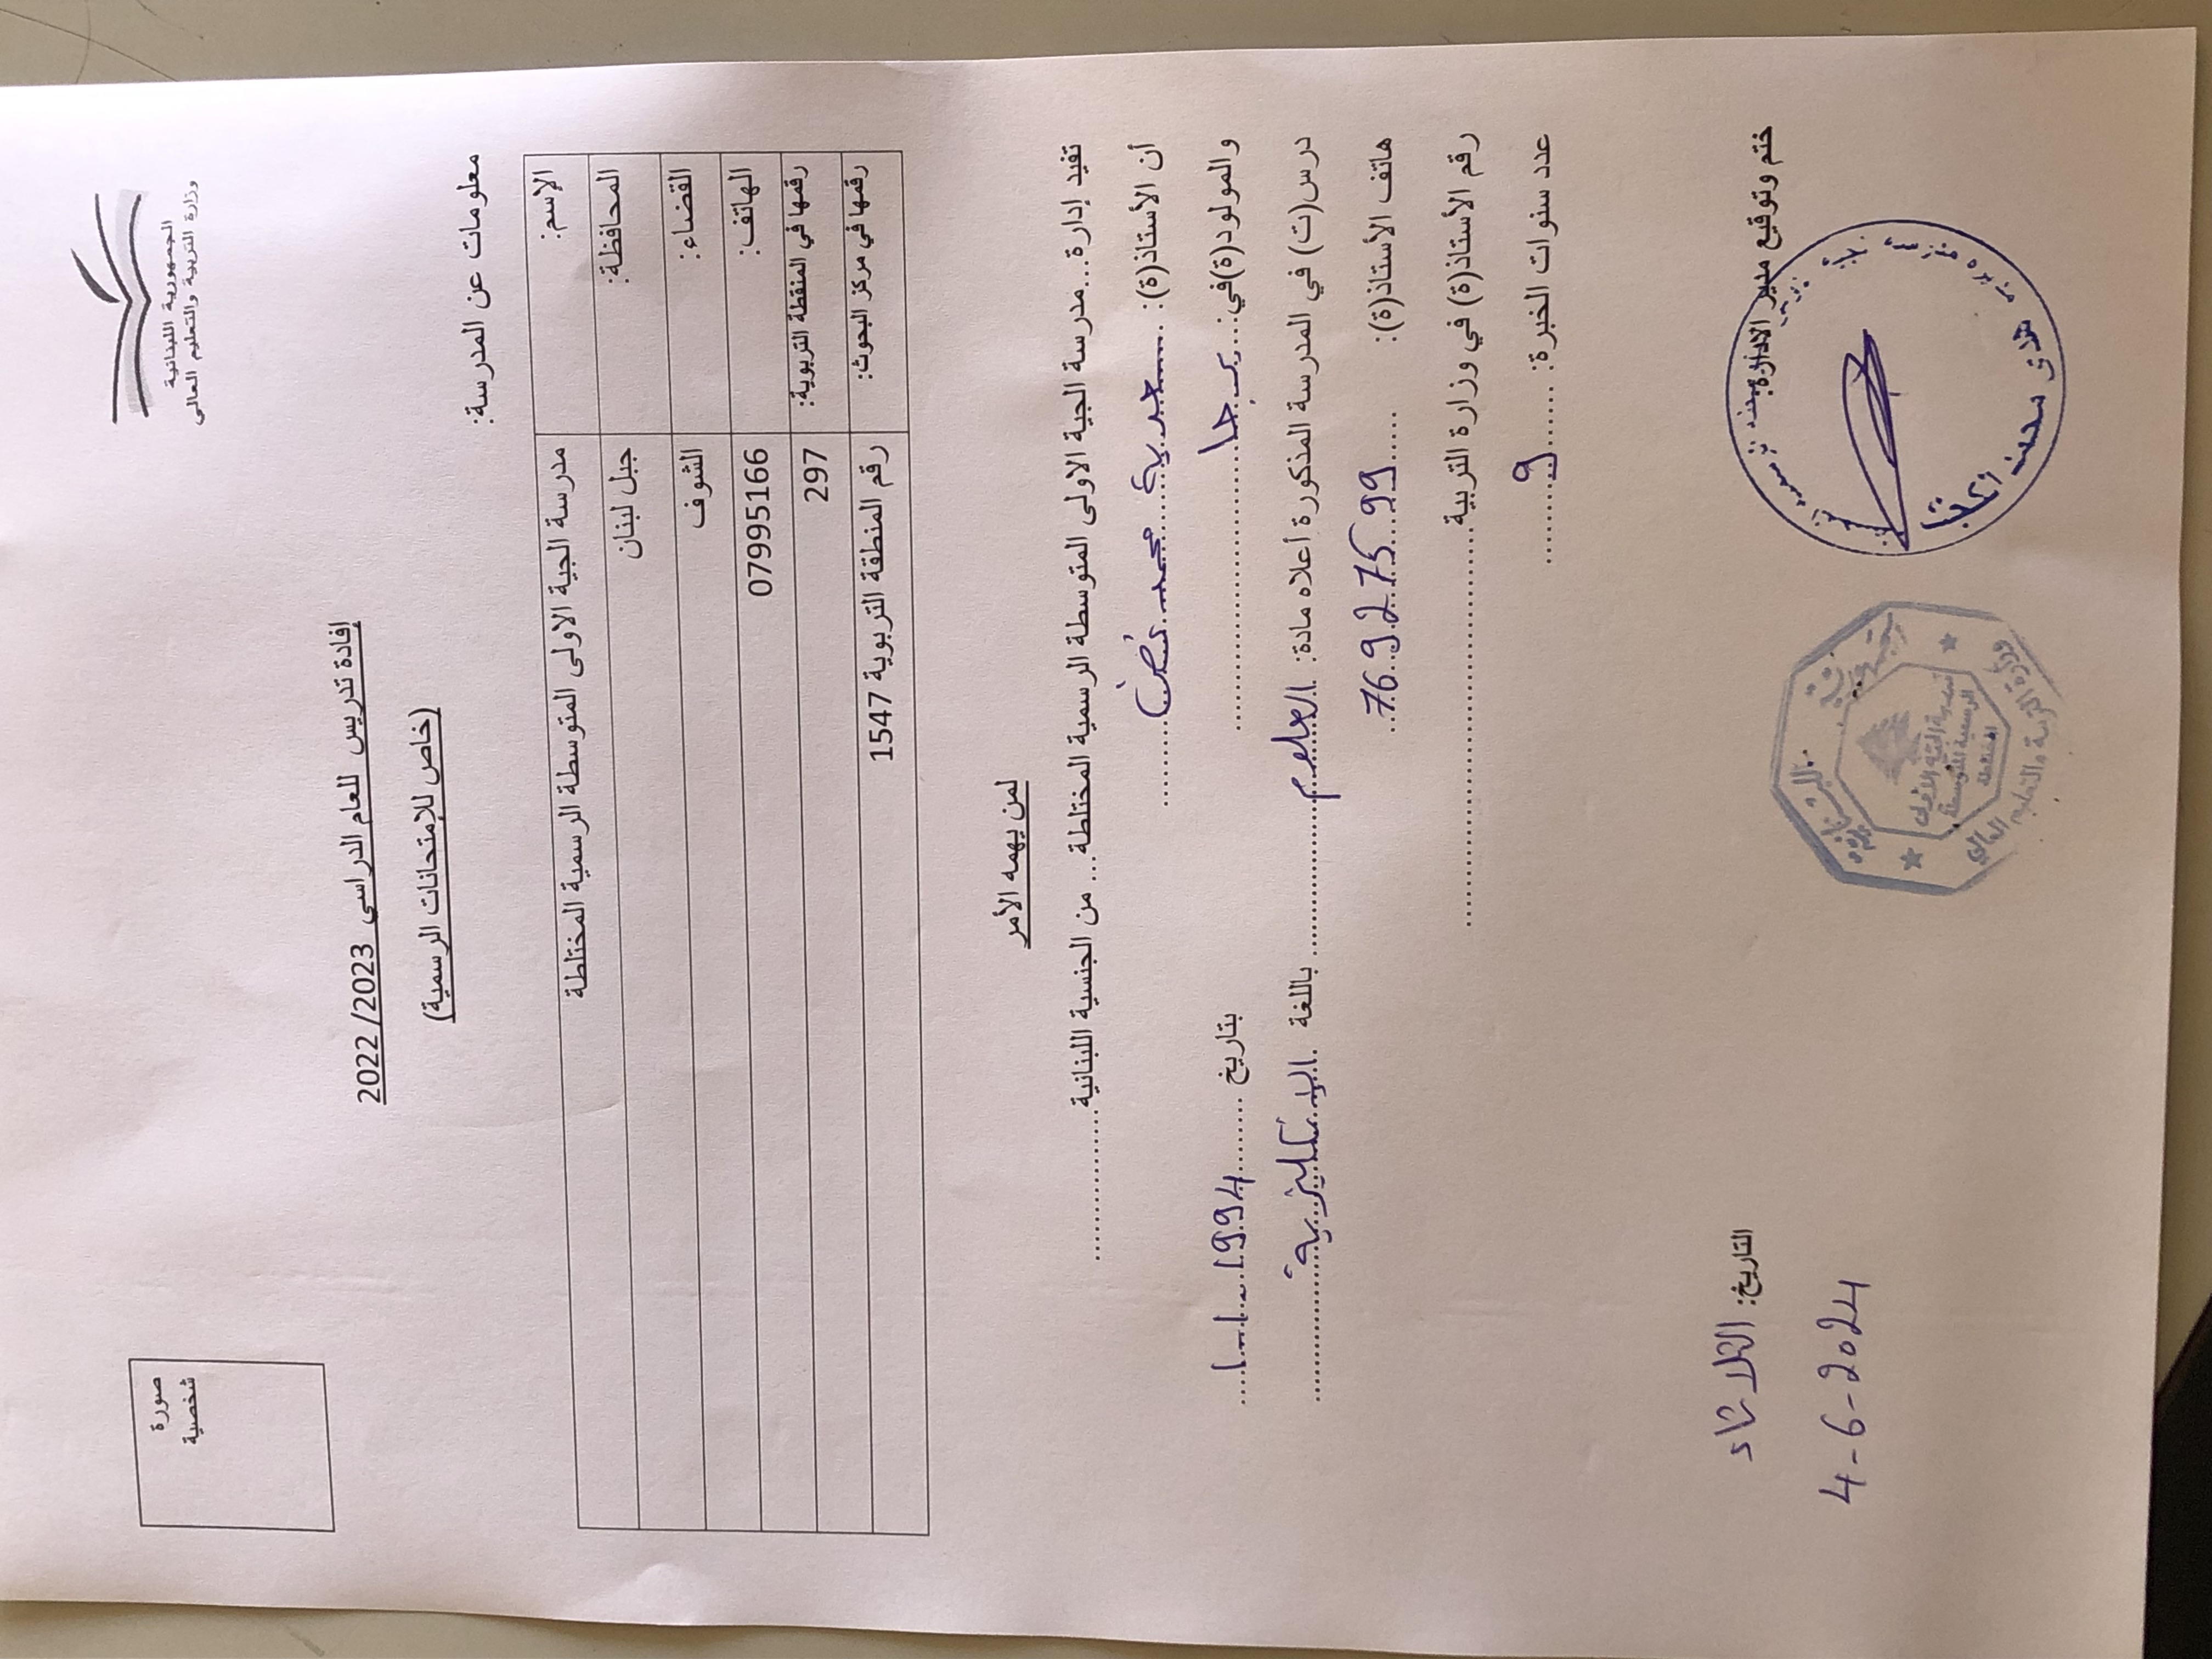 الجمهورية اللبنانية
وزارة التربية والتعليم العالي
صورة
شخصية
إفادة تدريس للعام الدراسي 2023/ 2022
(خاص للإمتحانات الرسمية)
معلومات عن المدرسة:
الإسم: مدرسة الجية الاولى المتوسطة الرسمية المختلطة
المحافظة: جبل لبنان
القضاء: الشوف
الهاتف: 07995166
رقمها في المنقطة التربوية: 297
رقمها في مركز البحوث: رقم المنطقة التربوية 1547
لمن يهمه الأمر
تفيد إدارة...مدرسة الجية الاولى المتوسطة الرسمية المختلطة... من الجنسية اللبنانية
أن الأستاذ(ة): محمد
والمولود(ة)في: برجا بتاريخ 1-1-1994
درس(ت) في المدرسة المذكورة أعلاه مادة: العلوم باللغة الإنكليزية
هاتف الأستاذ(ة): 76927599
رقم الأستاذ(ة) في وزارة التربية
عدد سنوات الخبرة: 9
ختم وتوقيع مدير الادارة
التاريخ: الثلاثاء
4-6-2024
وزارة التربية والتعليم العالي